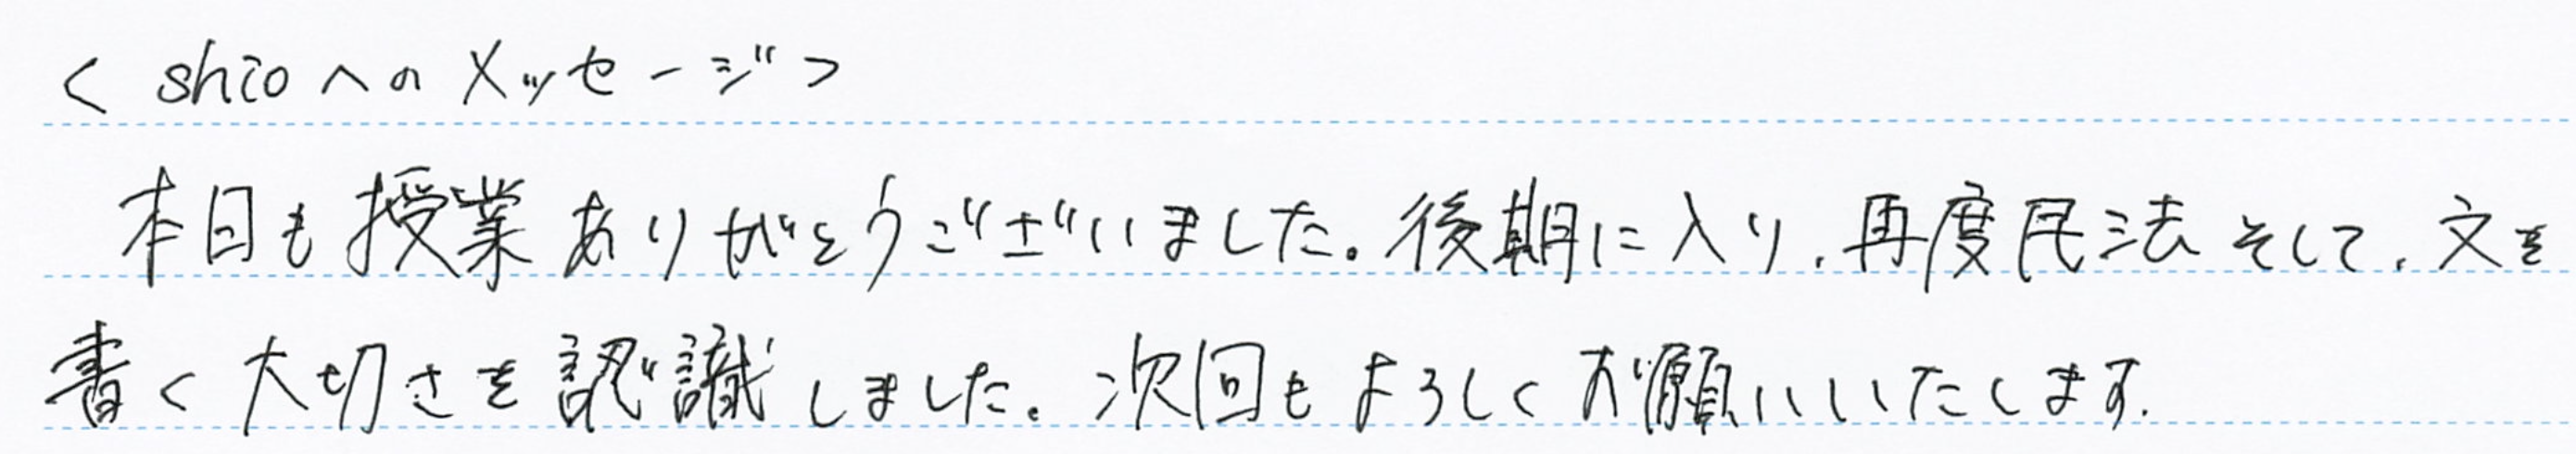 < shioへのメッセージ>
本日も授業ありがとうございました。後期に入り、再度民法そして、文を
書く大切さを認識しました。次回もよろしくお願いいたします。